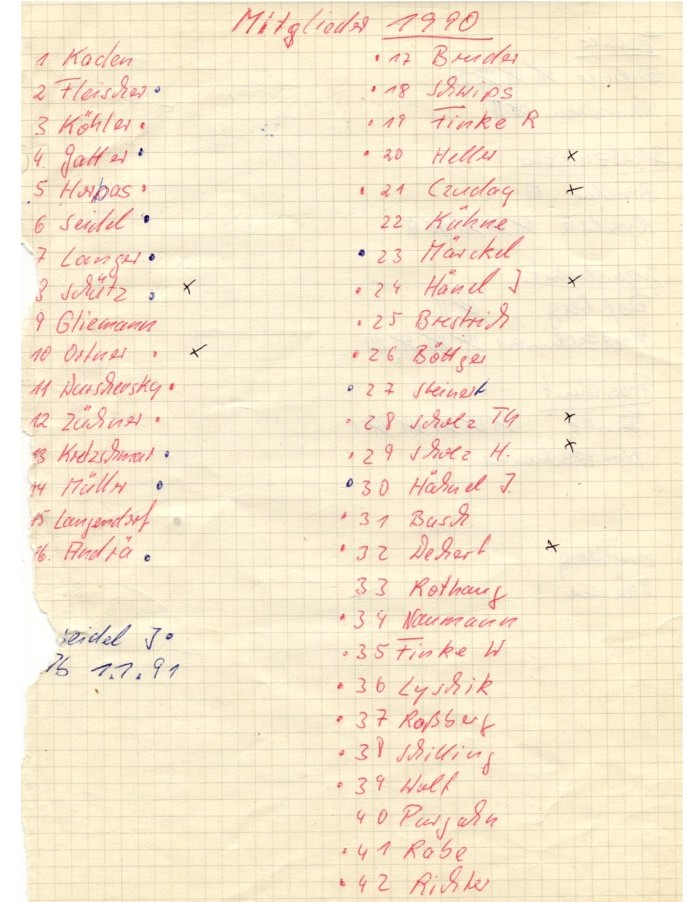 Mitglieder 1990
1 Kaden
2 Fleischer
3 Köhler
4. Gatter
5 Horbas
6 Seidel
7 Langer
8 Schütz x
9 Gliemann
10 Ortner x
11
12 Züchner
13 Kretzschmar
14 Müller
15 Langendorf
16. Andrä
Seidel J
1.1.91
17 Bruder
18 Schwips
19 Finke R
20 Heller x
21 Czuday x
22 Kühne
23 Märckel
24 Hänel J x
25 Brestrich
26 Böttger
27 Steinert
28 Scholz Th x
29 Scholz H. x
30 Hähnel J.
31 Busch
32 Dechert x
33 Rothaug
34 Naumann
35 Finke W
36 Lyschik
37 Roßberg
38 Schilling
39 Wolf
40 Purgahn
41 Rabe
42 Richter